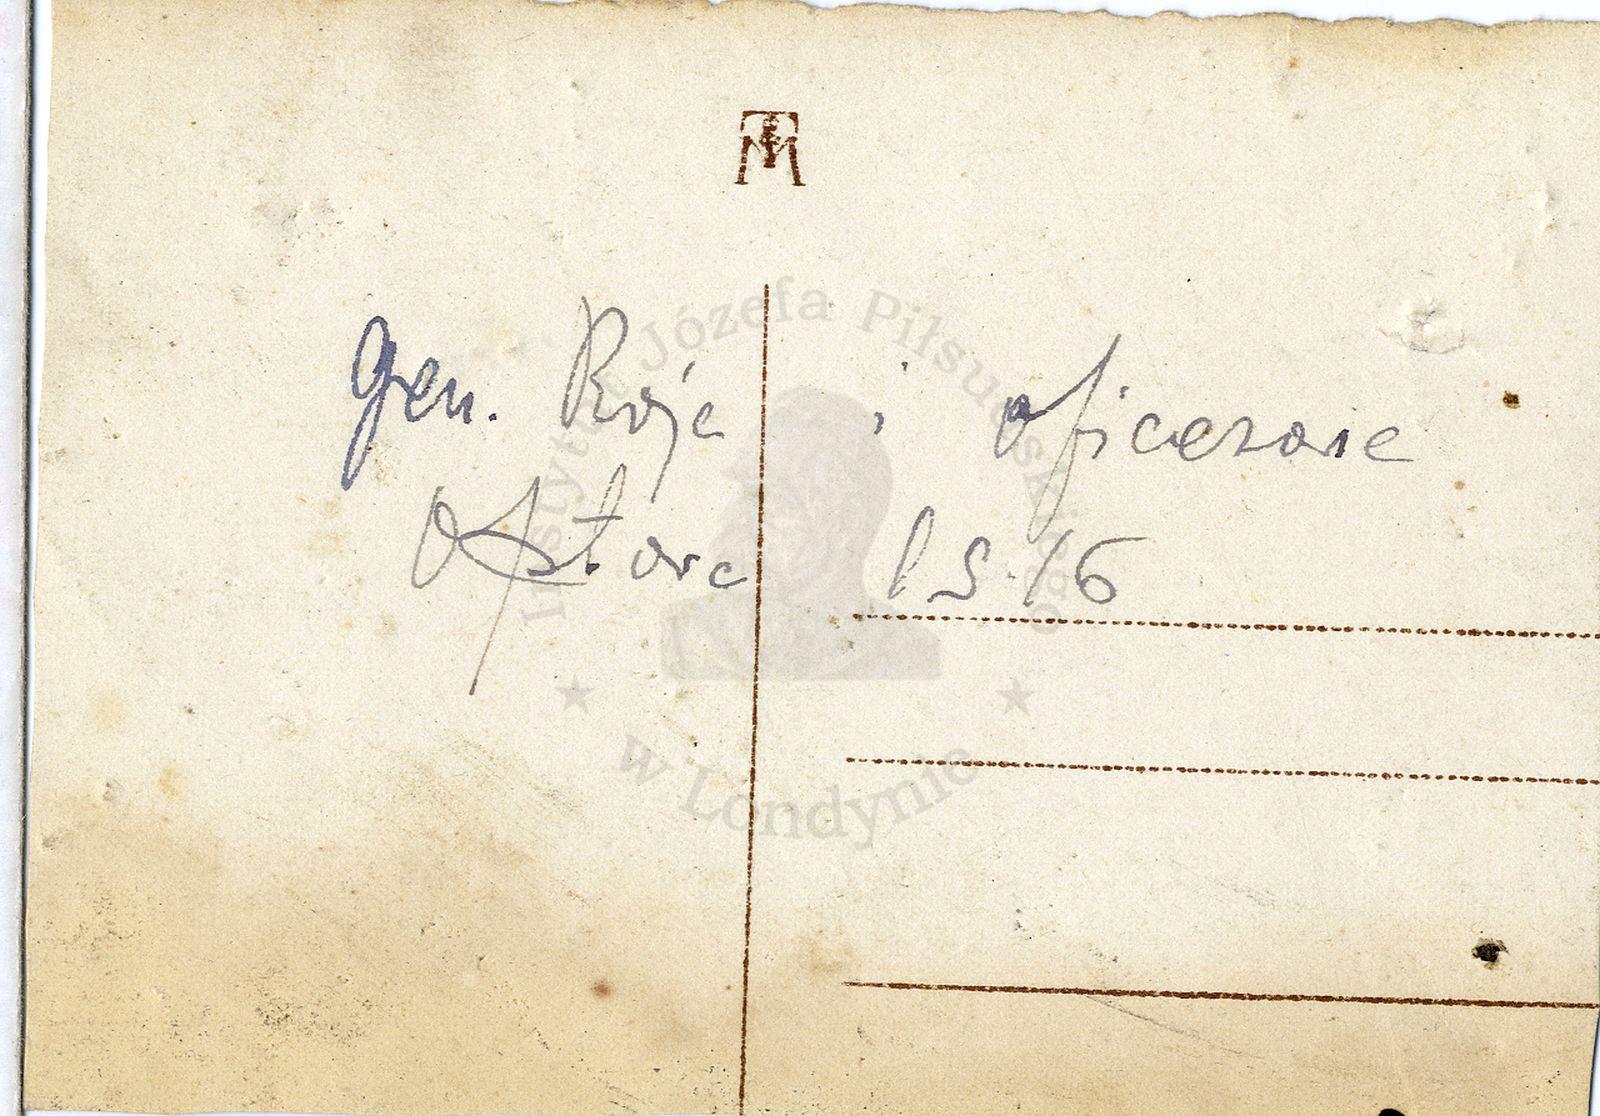 Gen. Roja i oficerowie
Optowa 1916
Instytut Józefa Piłsudskiego
w Londynie